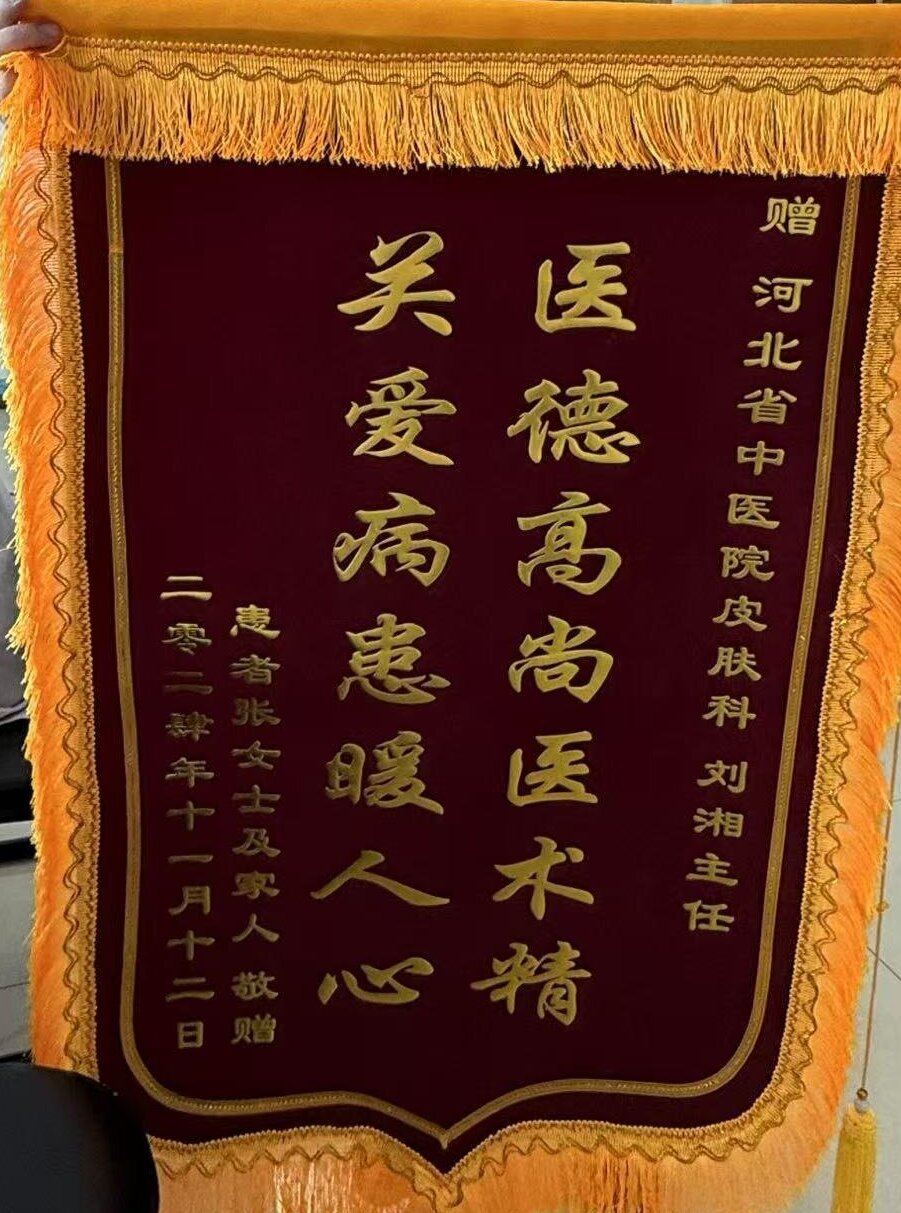 赠 河北省中医院皮肤科 刘湘主任
医德高尚医术精
关爱病患暖人心
患者张女士及家人 敬赠
二零二肆年十一月十二日